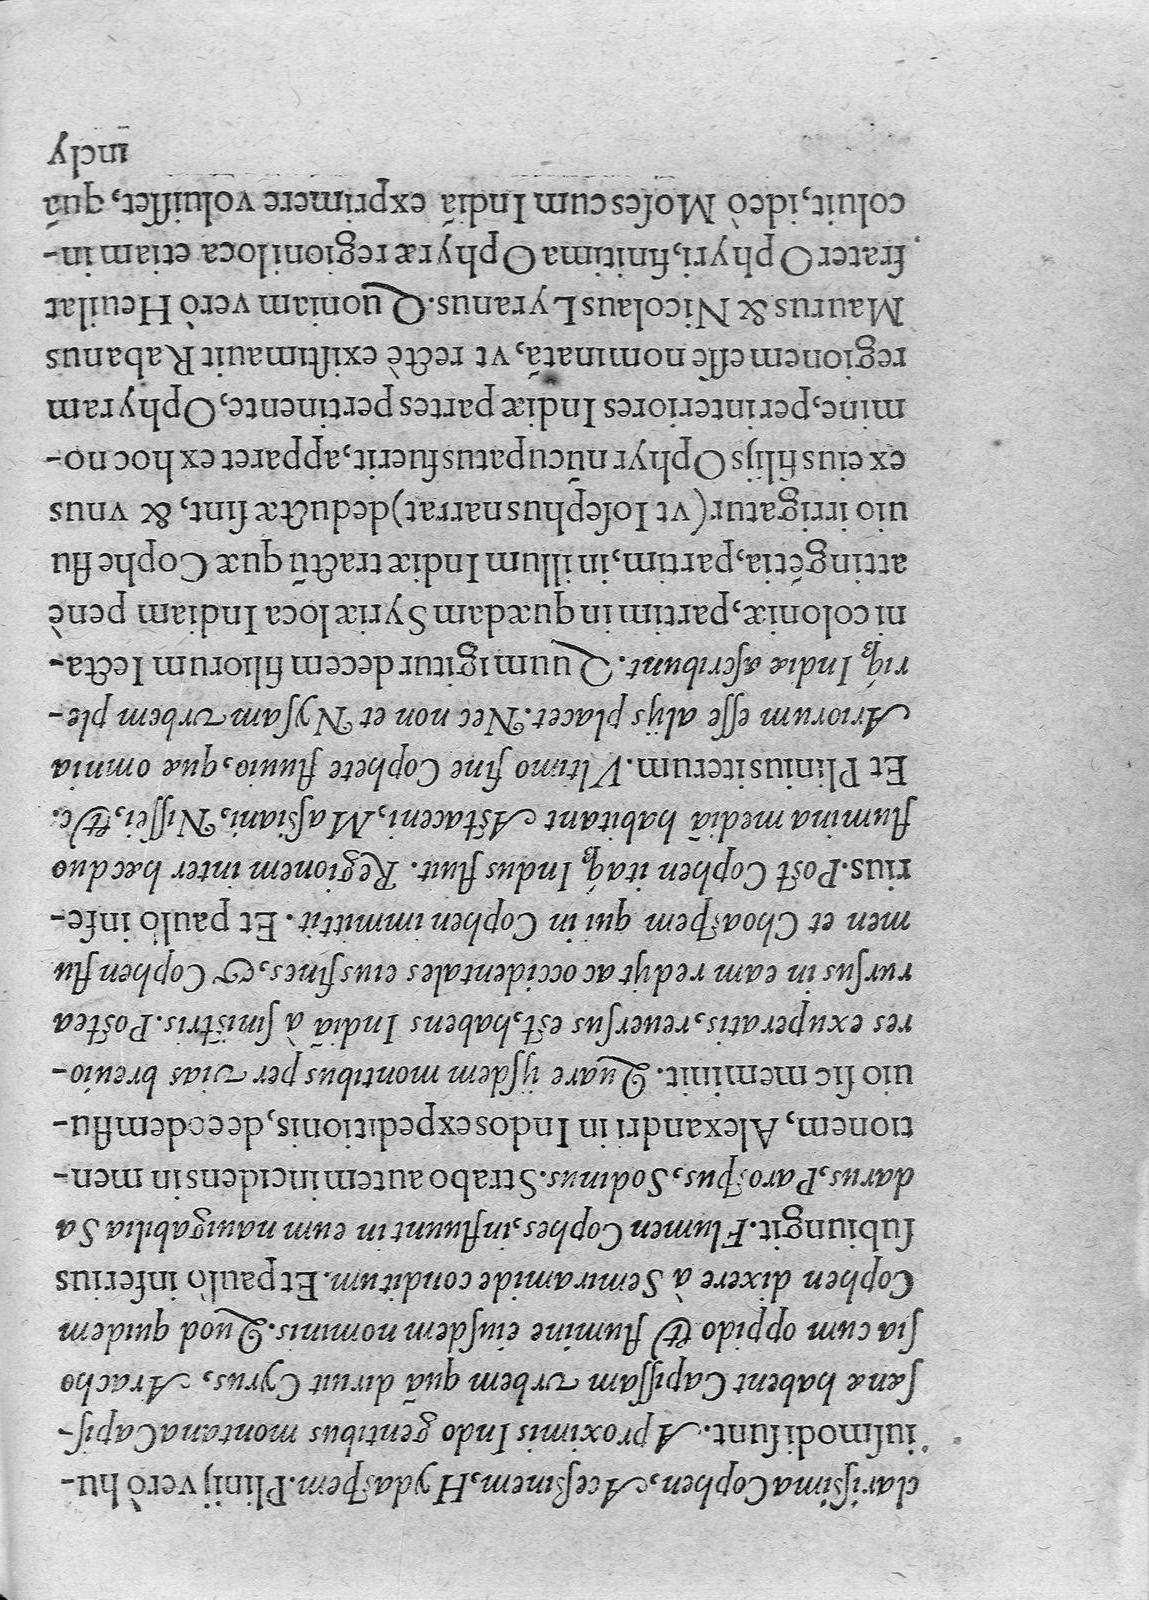 clariſsima Cophen, Aceſsinem, Hydaſpem. Plinij verò hu-
iuſmodi ſunt. A proximis Indo gentibus montana Capiſ-
ſenæ habent Capiſſam vrbem quã diruit Cyrus, Aracho
ſia cum oppido & flumine eiuſdem nominis. Quod quidem
Cophen dixere à Semiramide conditum. Et paulò inferius
ſubiungit. Flumen Cophes, influunt in eum nauigabilia Sa
darus, Paroſpus, Sodinus. Strabo autem incidens in men-
tionem, Alexandri in Indos expeditionis, de eodem flu-
uio ſic meminit. Quare ijſdem montibus per vias breuio-
res exuperatis, reuerſus eſt, habens Indiã à ſiniſtris. Poſtea
rurſus in eam redijt ac occidentales eius fines, & Cophen flu
men et Choaſpem qui in Cophen immittit. Et paulò infe-
rius. Poſt Cophen itaq́; Indus fluit. Regionem inter hæc duo
flumina mediã habitant Aſtaceni, Maſsiani, Niſſei, &c.
Et Plinius iterum. Vltimo fine Cophete fluuio, quæ omnia
Ariorum eſſe alijs placet. Nec non et Nyſam vrbem ple-
riq́; Indiæ aſcribunt. Quum igitur decem filiorum Iecta-
ni coloniæ, partim in quædam Syriæ loca Indiam penè
attingẽtia, partim, in illum Indiæ tractũ quæ Cophe flu
uio irrigatur (vt Ioſephus narrat) deductæ ſint, & vnus
ex eius filijs Ophyr nũcupatus fuerit, apparet ex hoc no-
mine, per interiores Indiæ partes pertinente, Ophyram
regionem eſſe nominatã, vt rectè exiſtimauit Rabanus
Maurus & Nicolaus Lyranus. Quoniam verò Heuilat
frater Ophyri, finitima Ophyræ regioni loca etiam in-
coluit, ideò Moſes cum Indiã exprimere voluiſſet, quã
incly